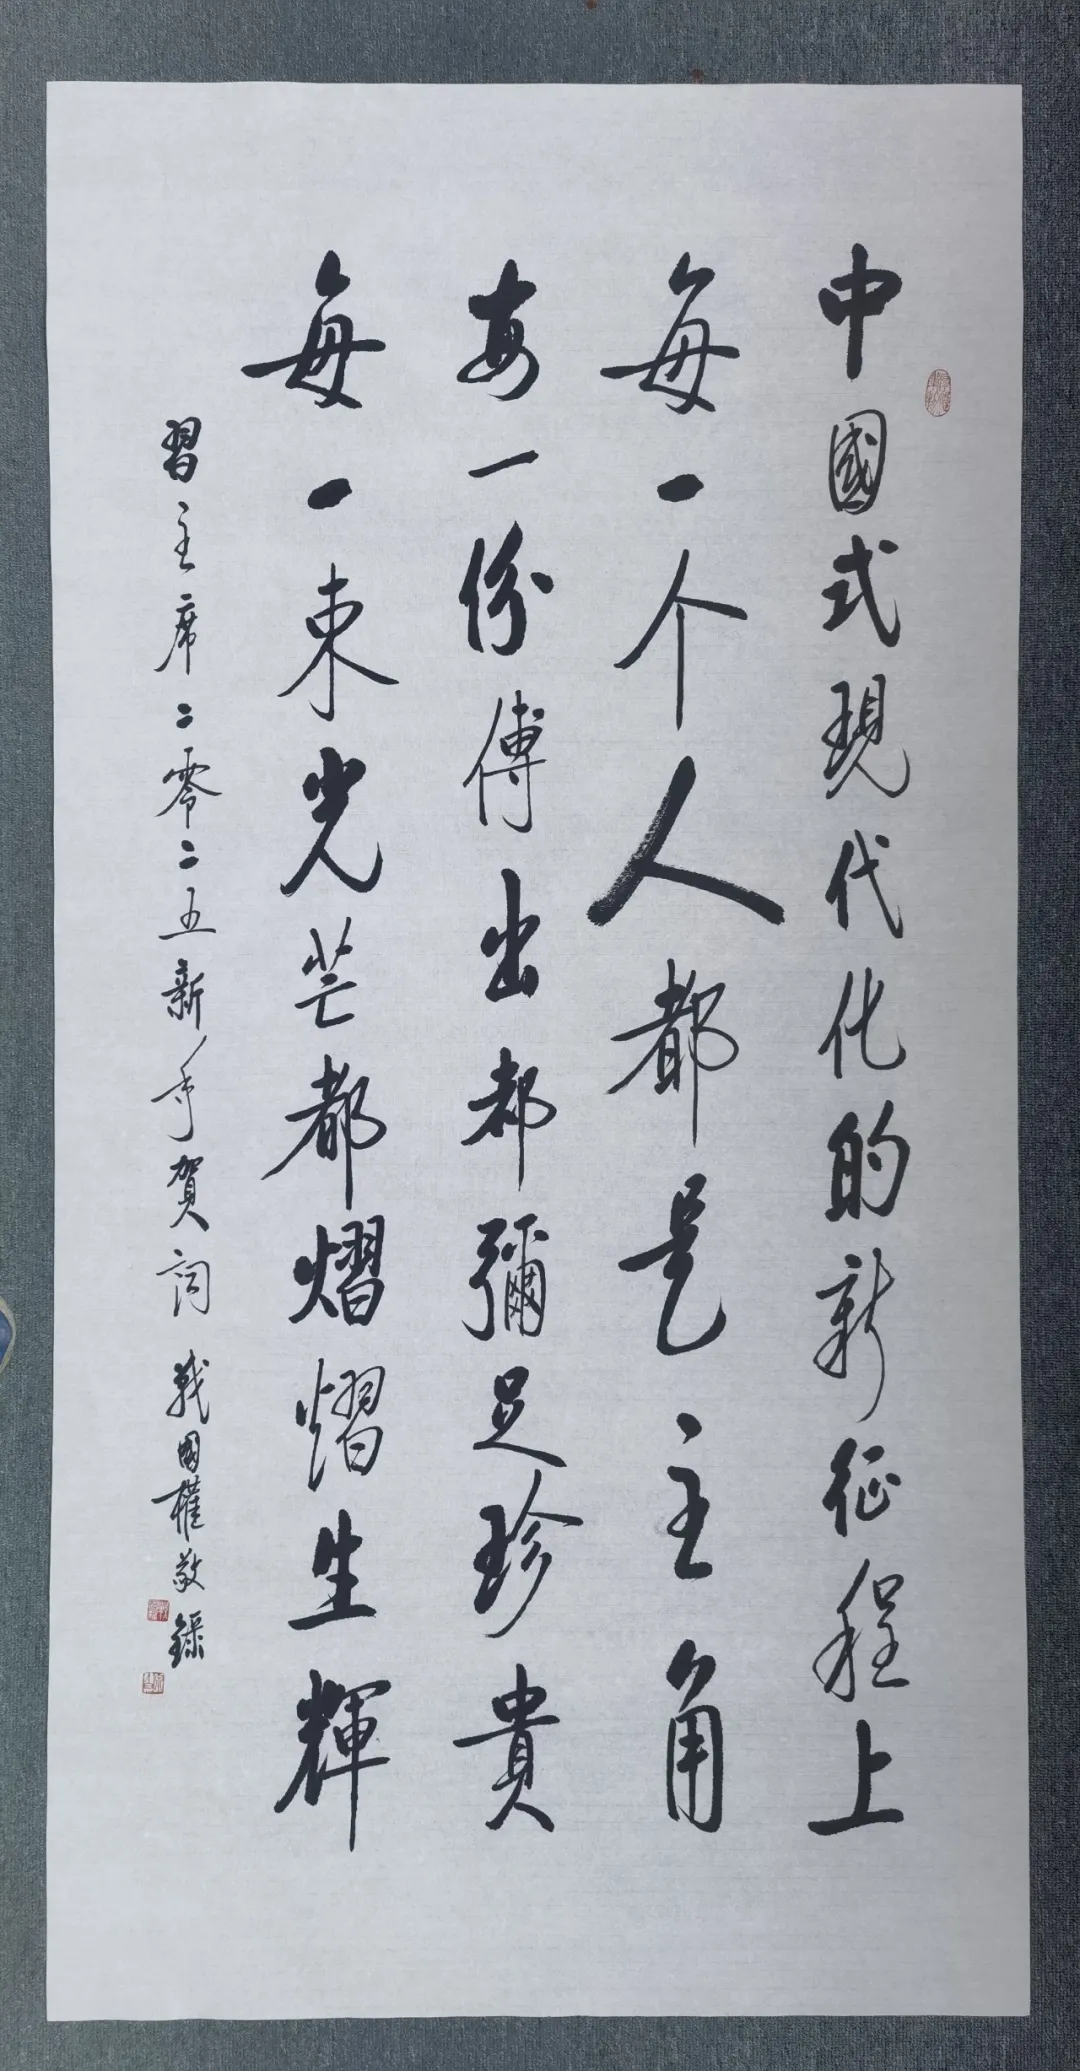 中國式現代化的新征程上
每一个人都是主角
每一份傅出都彌足珍貴
每一束光芒都熠熠生輝
習主席二零二五新年賀詞 戰國權敬錄